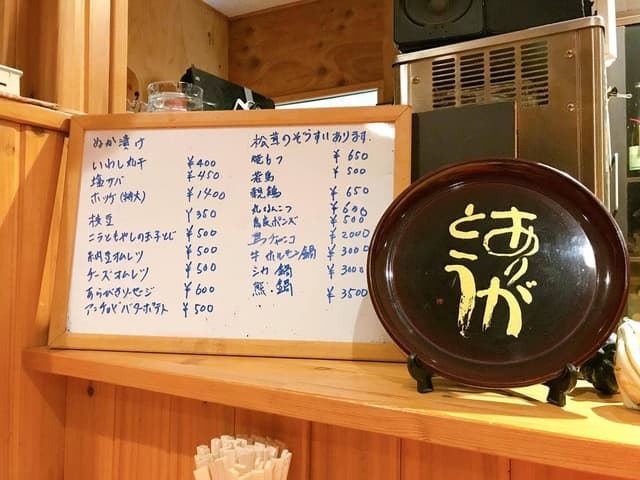 ぬか漬け
いわし丸干 ¥400
塩サバ ¥450
ホッケ(特大) ¥1400
枝豆 ¥350
ニラともやしのお子とじ ¥500
納豆オムレツ ¥500
チーズオムレツ ¥500
あらびきソーセージ ¥600
アンチョビバターポテト ¥500
松茸のぞうすいあります。
焼もつ ¥650
若鳥 ¥500
親鶏 ¥650
丸なんこつ ¥600
鳥皮ポンズ ¥500
鳥チャンコ ¥2000
牛ホルモン鍋 ¥3000
シカ鍋 ¥3000
熊・鍋 ¥3500
ありが
とう